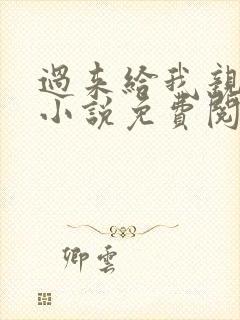 過来給我親
小說免費閱
卿雲